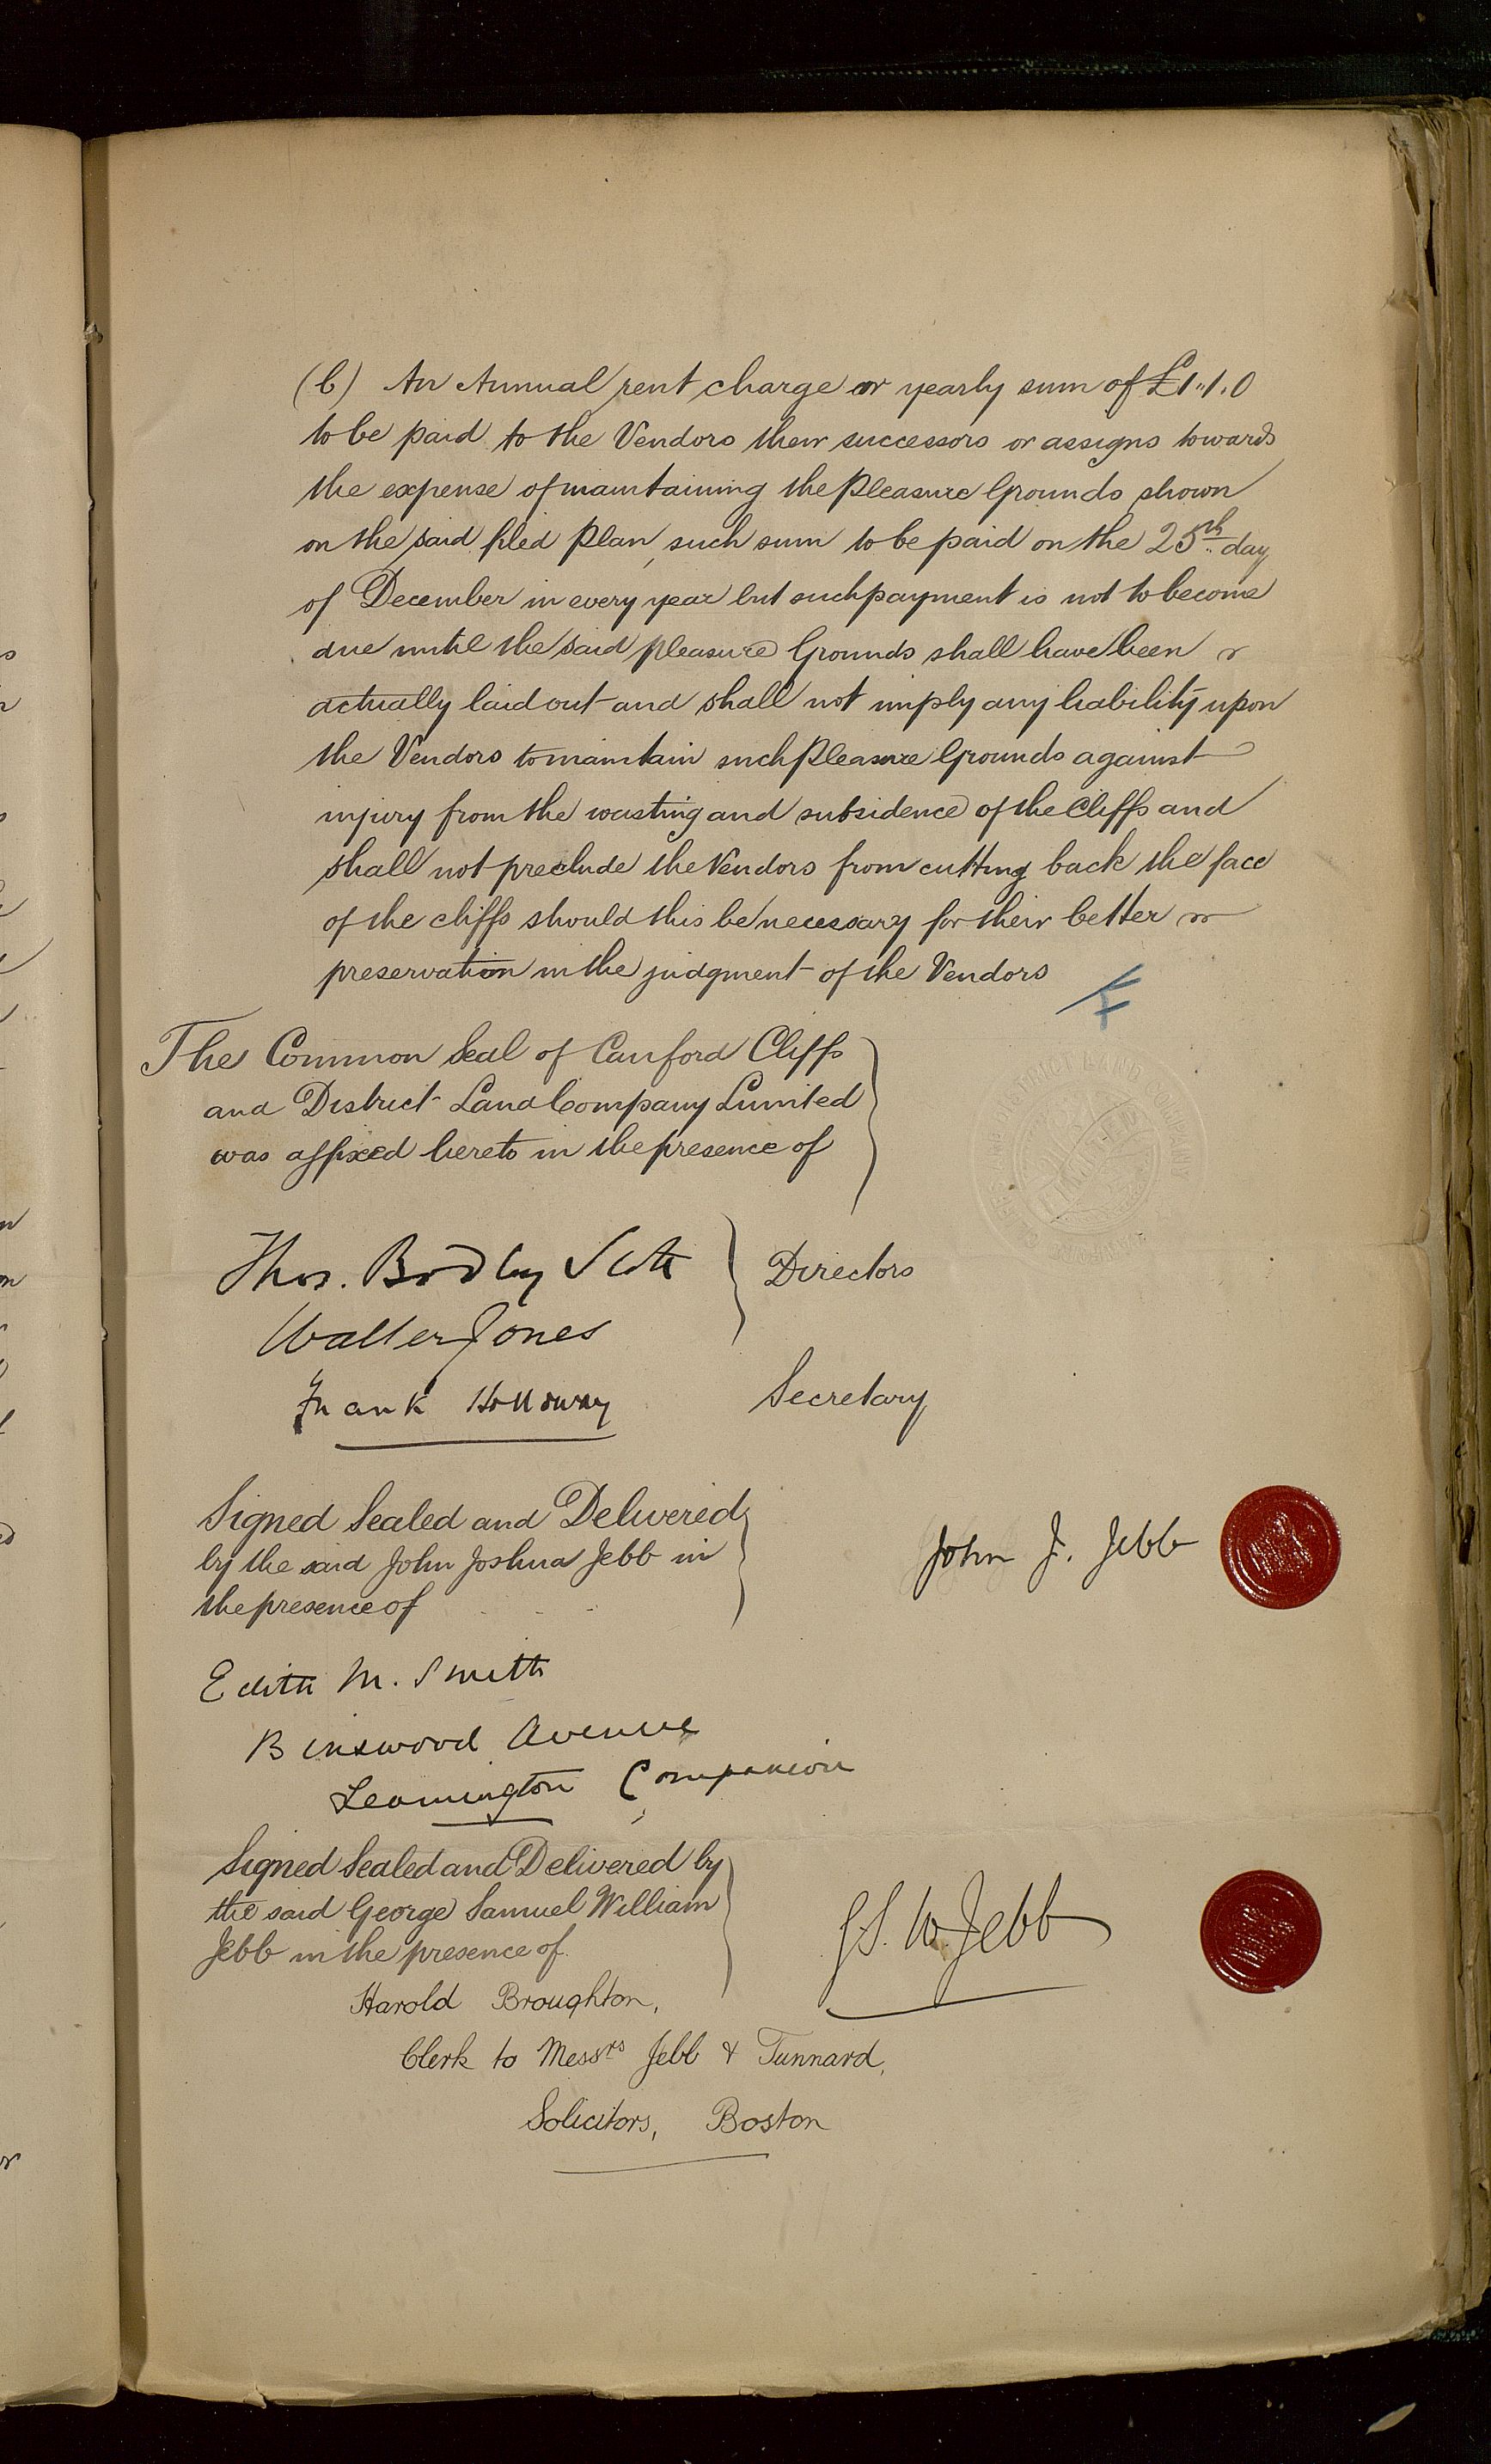 (b) An Annual rent charge or yearly sum of £1..1.0
to be paid to the Vendors their successors or assigns towards
the expense of maintaining the Pleasure Grounds shown
on the said filed Plan, such sum to be paid on the 25th day
of December in every year but such payment is not to become
due until the said pleasure Grounds shall have been
actually laid out and shall not imply any liability upon
the Vendors to maintain such Pleasure Grounds against
injury from the wasting and subsidence of the Cliffs and
shall not preclude the Vendors from cutting back the face
of the cliffs should this be necessary for their better
preservation in the judgment of the Vendors
The Common Seal of Canford Cliffs
and District Land Company Limited
was affixed hereto in the presence of
DISTRICT LAND COMPANY
LIMITED
Thos. Bodley Scott
Directors
Walter Jones
Frank Holloway
Secretary
Signed Sealed and Delivered
by the said John Joshua Jebb in
the presence of
John J. Jebb
Edith M. Smith
Binswood Avenue
Leamington Companion
Signed Sealed and Delivered by
the said George Samuel William
Jebb in the presence of
G.S.W. Jebb
Harold Broughton,
Clerk to Messrs Jebb & Tunnard,
Solicitors, Boston